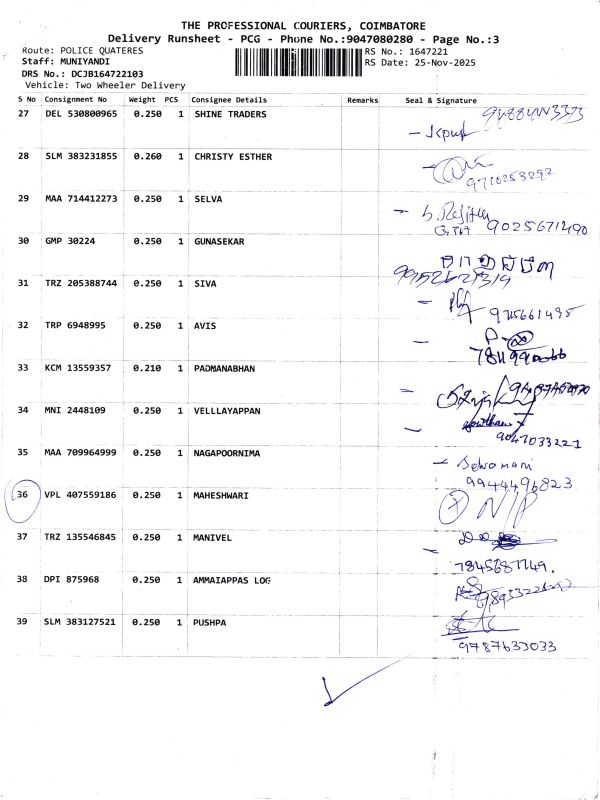 THE PROFESSIONAL COURIERS, COIMBATORE
Delivery Runsheet - PCG - Phone No.:9047080280 - Page No.:3
Route: POLICE QUATERES
RS No.: 1647221
Staff: MUNIYANDI
RS Date: 25-Nov-2025
DRS No.: DCJB164722103
Vehicle: Two Wheeler Delivery
S No Consignment No Weight PCS Consignee Details Remarks Seal & Signature
27 DEL 530800965 0.250 1 SHINE TRADERS
28 SLM 383231855 0.260 1 CHRISTY ESTHER
9710253292
29 MAA 714412273 0.250 1 SELVA
9025671490
30 GMP 30224 0.250 1 GUNASEKAR
31 TRZ 205388744 0.250 1 SIVA
32 TRP 6948995 0.250 1 AVIS
33 KCM 13559357 0.210 1 PADMANABHAN
34 MNI 2448109 0.250 1 VELLLAYAPPAN
9047033221
35 MAA 709964999 0.250 1 NAGAPOORNIMA
9944496823
36 VPL 407559186 0.250 1 MAHESHWARI
N/P
37 TRZ 135546845 0.250 1 MANIVEL
7845687749.
38 DPI 875968 0.250 1 AMMAIAPPAS LOG
39 SLM 383127521 0.250 1 PUSHPA
9787633033